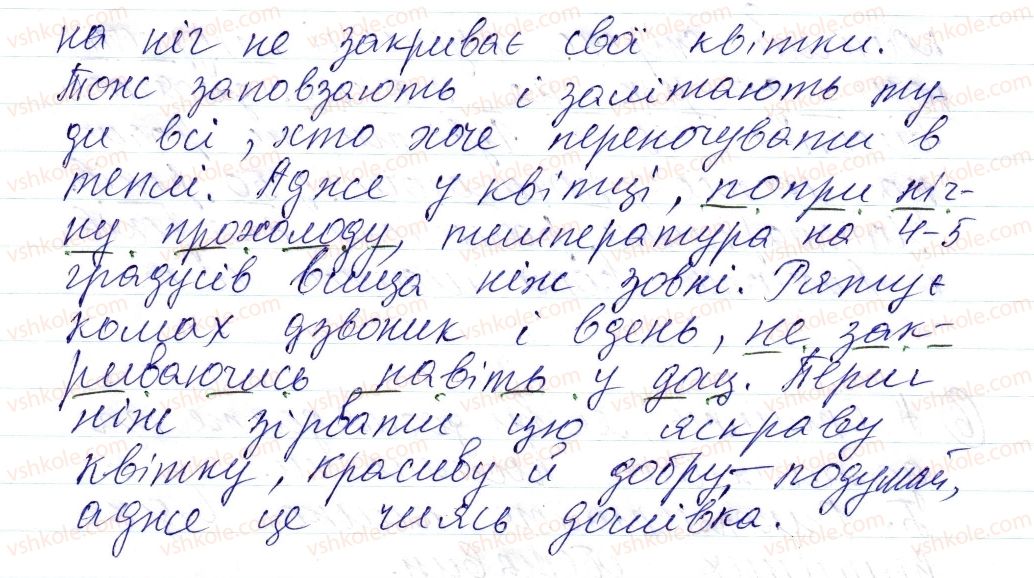 на ніч не закриває свої квітки.
Тож заповзають і залітають ту-
ди всі, хто хоче переночувати в
теплі. Адже у квітці, попри ніч-
ну прохолоду, температура на 4-5
градусів вища ніж зовні. Рятує
комах дзвоник і вдень, не зак-
риваючись навіть у дощ. Перш
ніж зірвати цю яскраву
квітку, красиву й добру, – подумай,
адже це чиясь домівка.